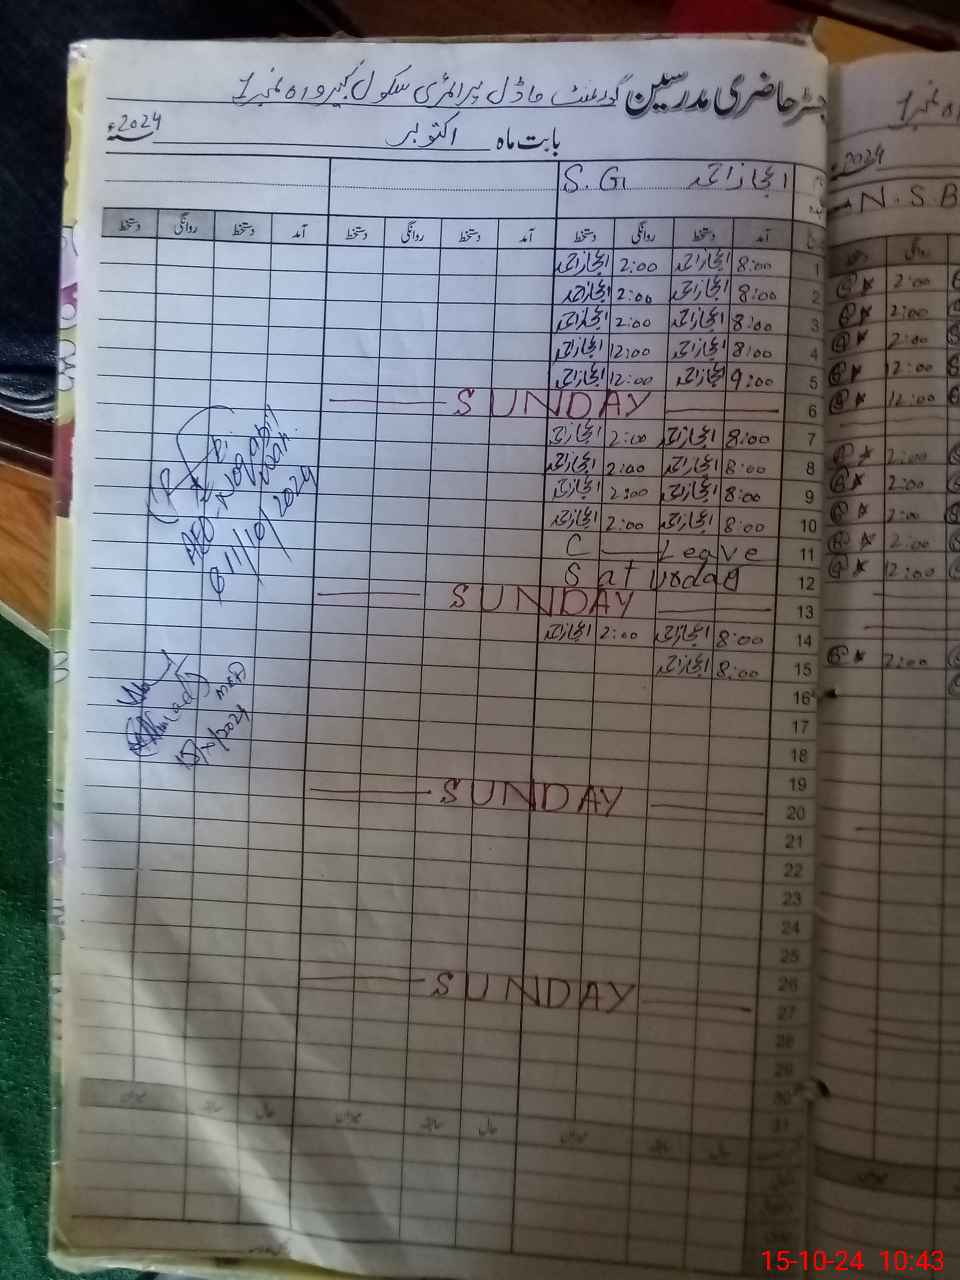 رجسٹر حاضری مدرسین گورنمنٹ ماڈل پرائمری سکول نمبر 1
بابت ماہ اکتوبر 2024ء
اعجاز احمد S.G
آمد دستخط روانگی دستخط آمد دستخط روانگی دستخط آمد دستخط روانگی دستخط
1 8:00 اعجاز احمد 2:00 اعجاز احمد
2 8:00 اعجاز احمد 2:00 اعجاز احمد
3 8:00 اعجاز احمد 2:00 اعجاز احمد
4 8:00 اعجاز احمد 12:00 اعجاز احمد
5 9:00 اعجاز احمد 12:00 اعجاز احمد
6 SUNDAY
7 8:00 اعجاز احمد 2:00 اعجاز احمد
8 8:00 اعجاز احمد 2:00 اعجاز احمد
9 8:00 اعجاز احمد 2:00 اعجاز احمد
10 8:00 اعجاز احمد 2:00 اعجاز احمد
11 C Leave
12 Saturday
13 SUNDAY
14 8:00 اعجاز احمد 2:00 اعجاز احمد
15 8:00 اعجاز احمد
16
17
18
19
20 SUNDAY
21
22
23
24
25
26
27 SUNDAY
28
29
30
31
میزان سابقہ حال میزان سابقہ حال میزان سابقہ حال
AEO
11/10/2024
15/x/2024
نمبر 1
2024
N.S.B
2:00
2:00
2:00
12:00
12:00
2:00
2:00
2:00
2:00
12:00
2:00
15-10-24 10:43